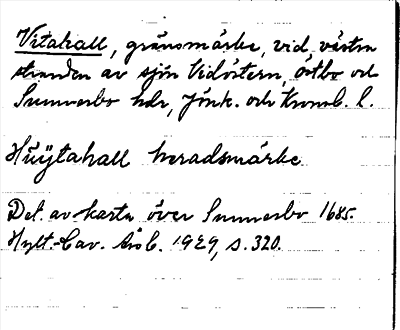 Vitahall, gränsmärke, vid västra
stranden av sjön Vidöstern, Östbo och
Sunnerbo hdr, Jönk. och Kronob. l.
Huÿtahall heradsmärke
Det. av karta över Sunnerbo 1685.
Hylt.-Cav. Årsb. 1929, s. 320.